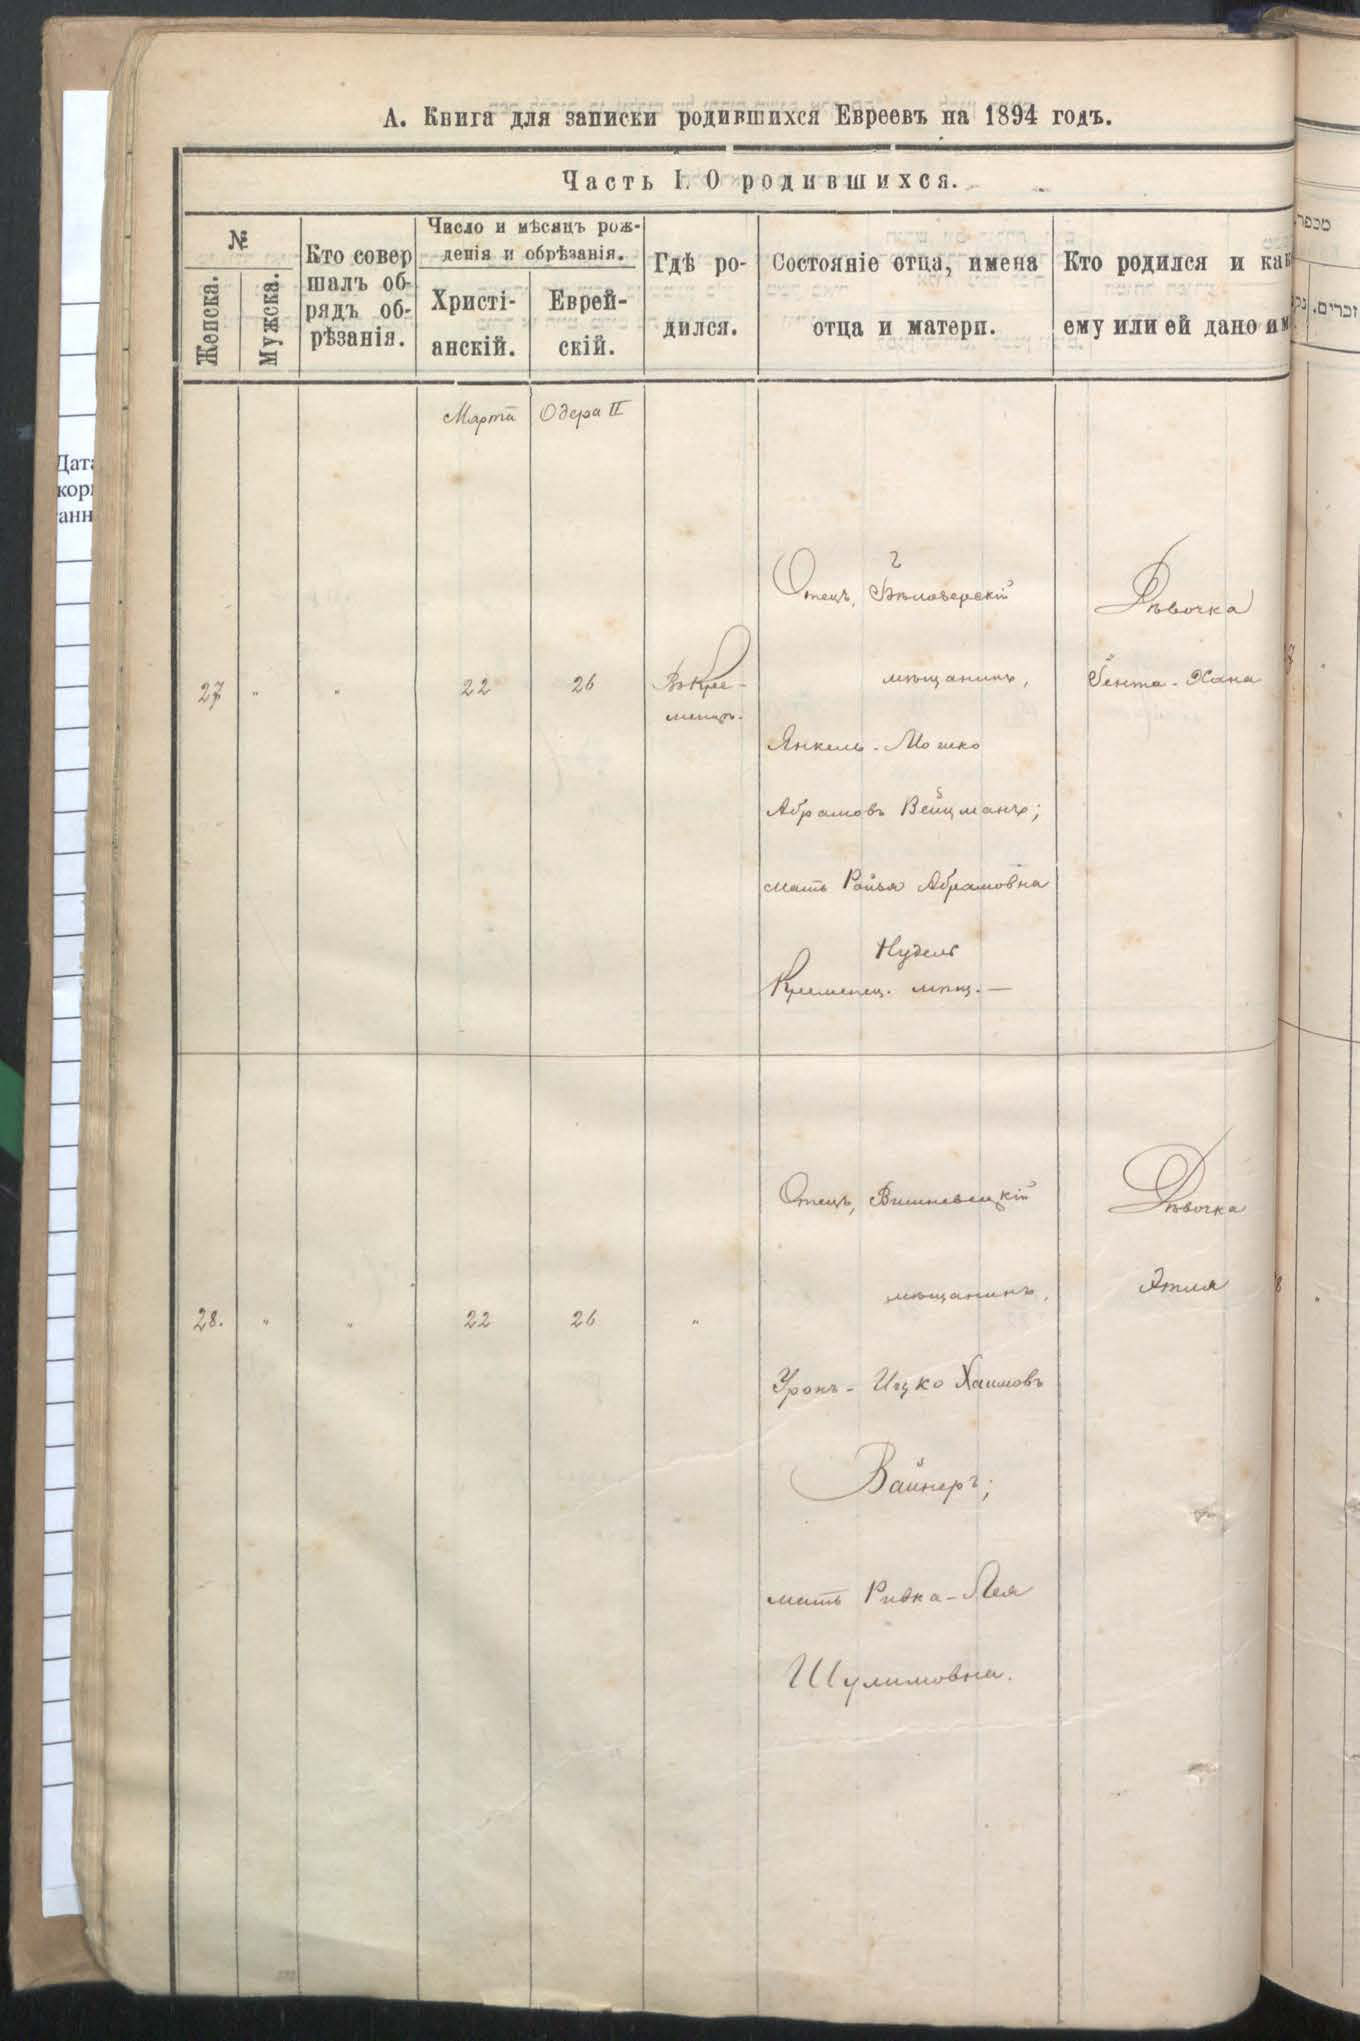 А. Книга для записки родившихся Евреевъ на 1894 годъ.
Часть I. О родившихся.
№
Женска.
Мужска.
Кто совер
шалъ об-
рядъ об-
рѣзанія.
Число и мѣсяцъ рож-
денія и обрѣзанія.
Христі-
анскій.
Еврей-
скій.
Гдѣ ро-
дился.
Состояніе отца, имена
отца и матери.
Кто родился и как
ему или ей дано им
Марта
Одера II
27
"
"
22
26
Въ Кре-
менцѣ.
Отецъ,
мѣщанинъ,
Янкель-Мошко
Абрамовъ Вейцманъ;
мать Ройзя Абрамовна
Нудель
Кременец. мѣщ. —
Дѣвочка
Хана
28.
"
"
22
26
"
Отецъ, Вишневецкій
мѣщанинъ,
Ицко Хаимовъ
Вайнеръ;
мать Ривка-Лея
Шулимовна.
Дѣвочка
Этля
מכפר
זכרים.
Дата
кор
анн